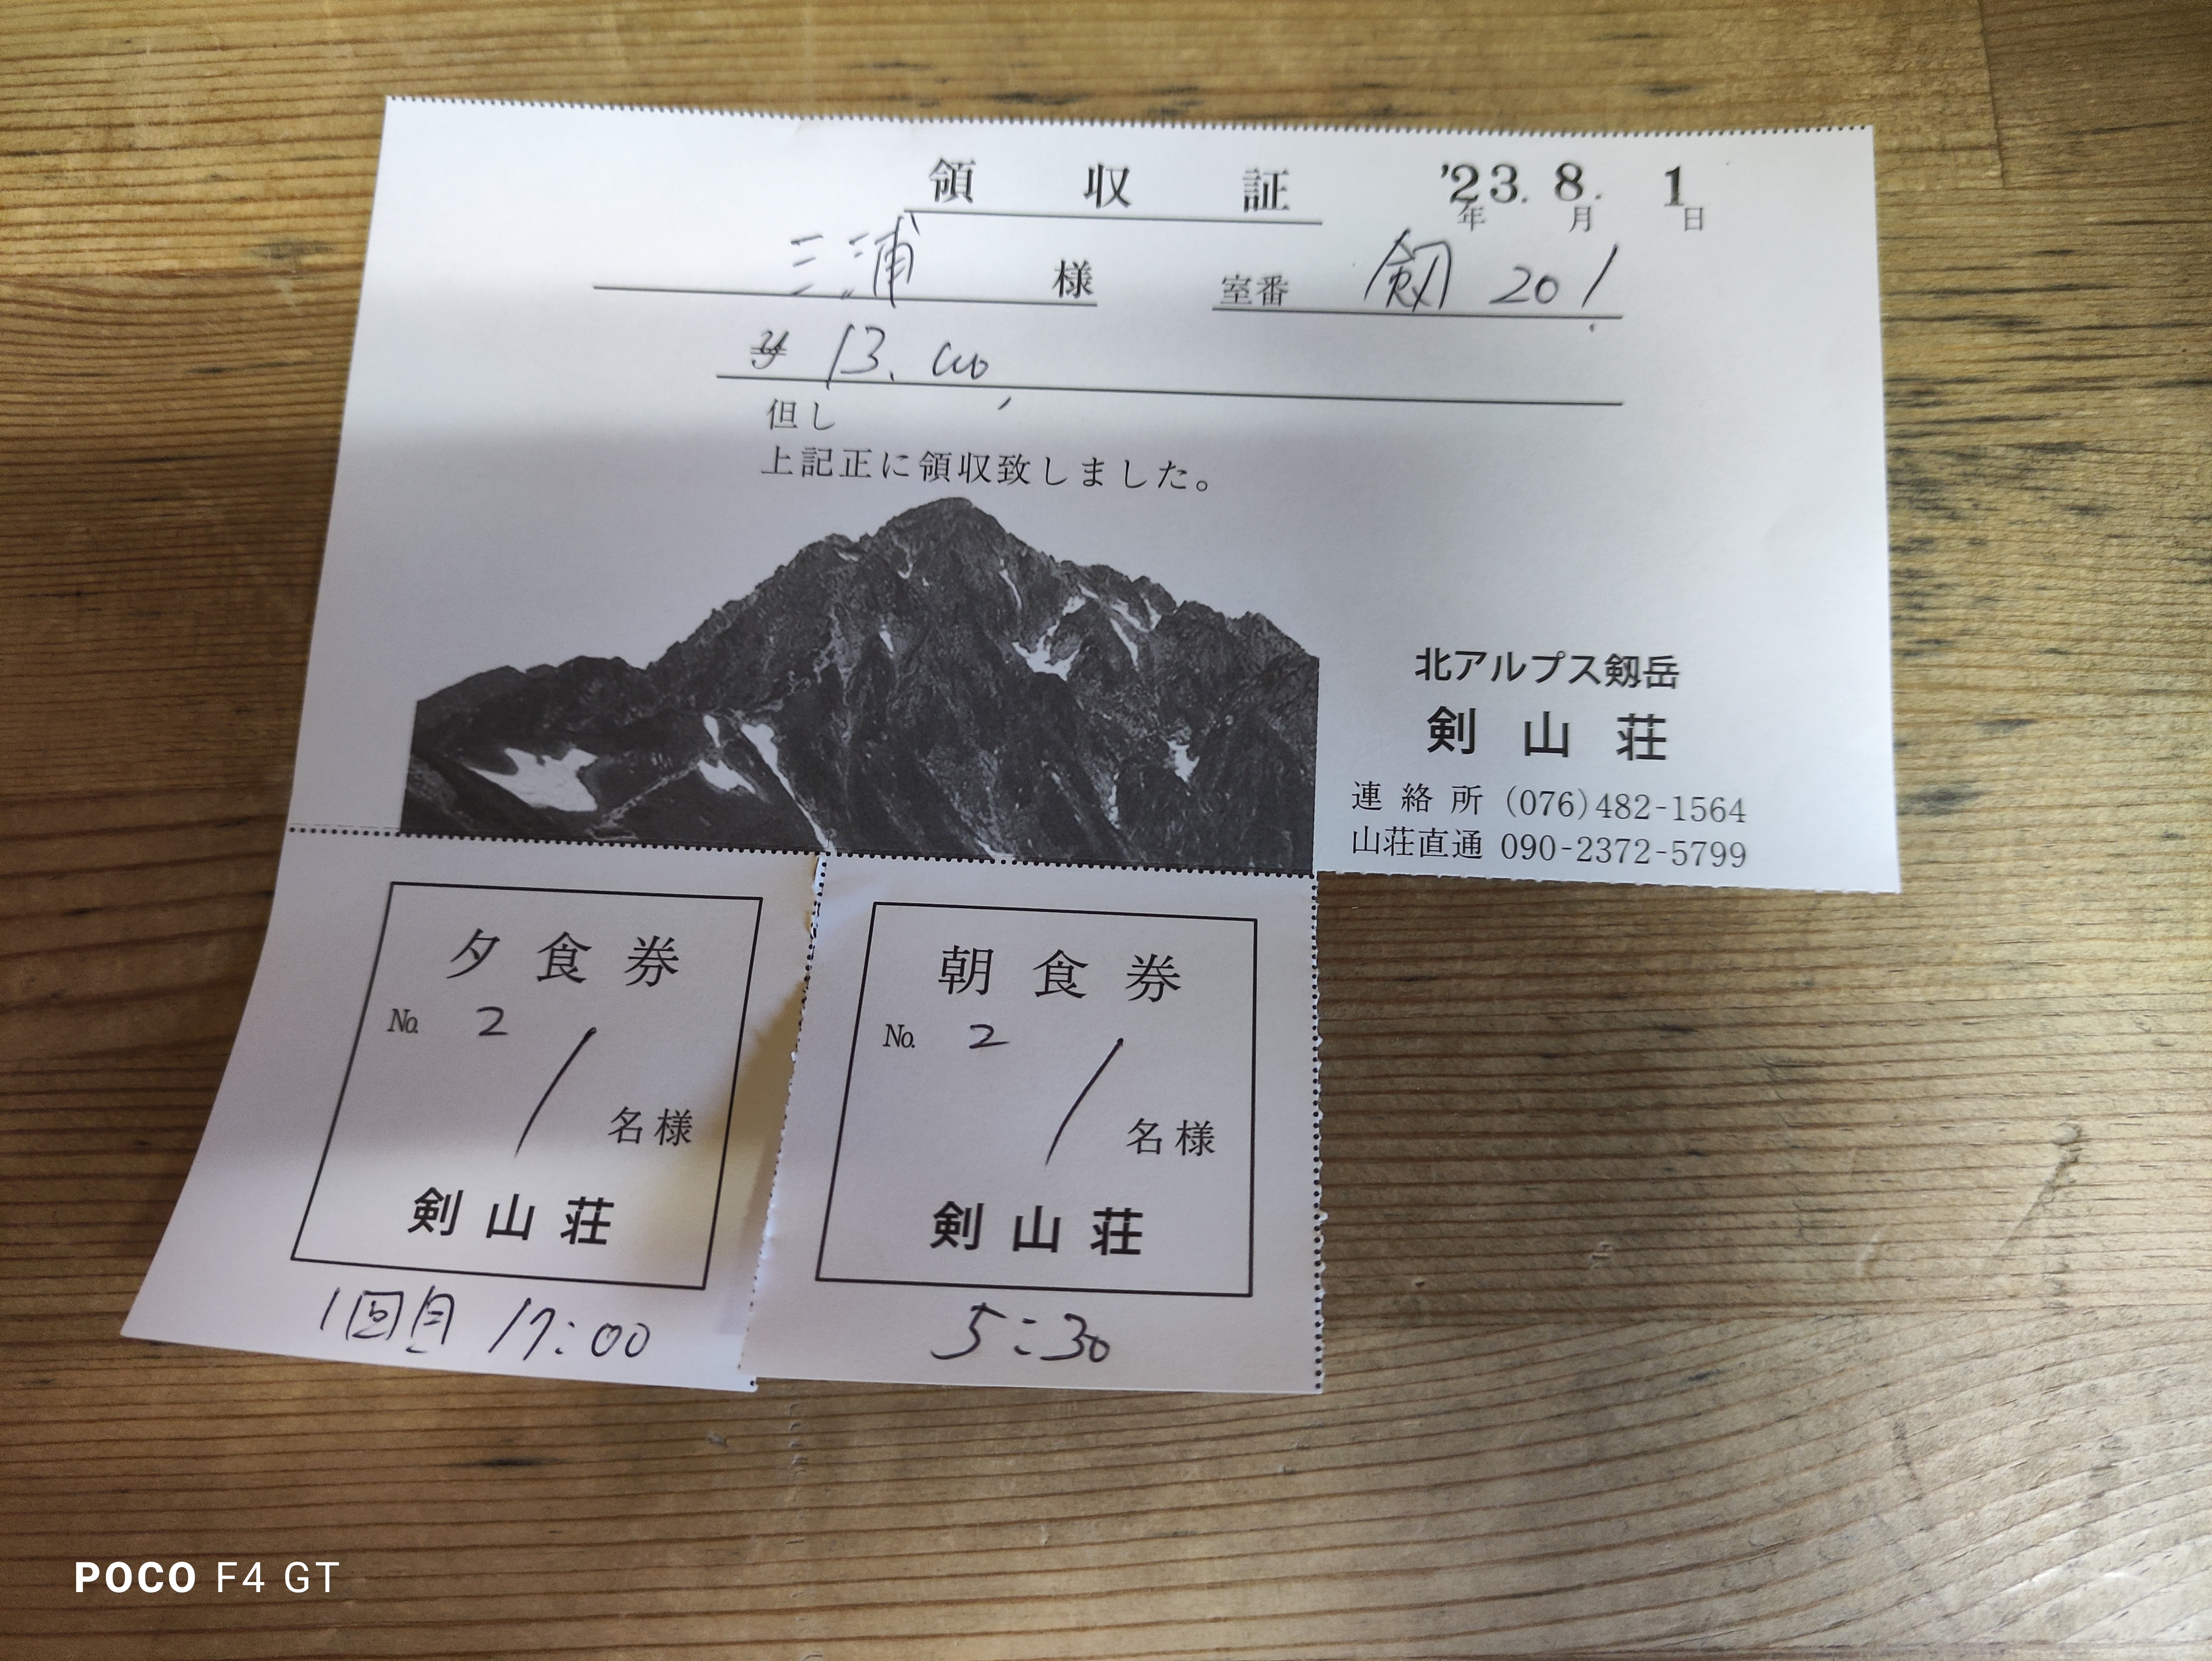 領収証 '23.8.1
年 月 日
三浦 様 室番 剱 201
¥13,000
但し
上記正に領収致しました。
北アルプス剱岳
剣山荘
連絡所 (076)482-1564
山荘直通 090-2372-5799
夕食券
No. 2
1 名様
剣山荘
1回目 17:00
朝食券
No. 2
1 名様
剣山荘
5:30
POCO F4 GT